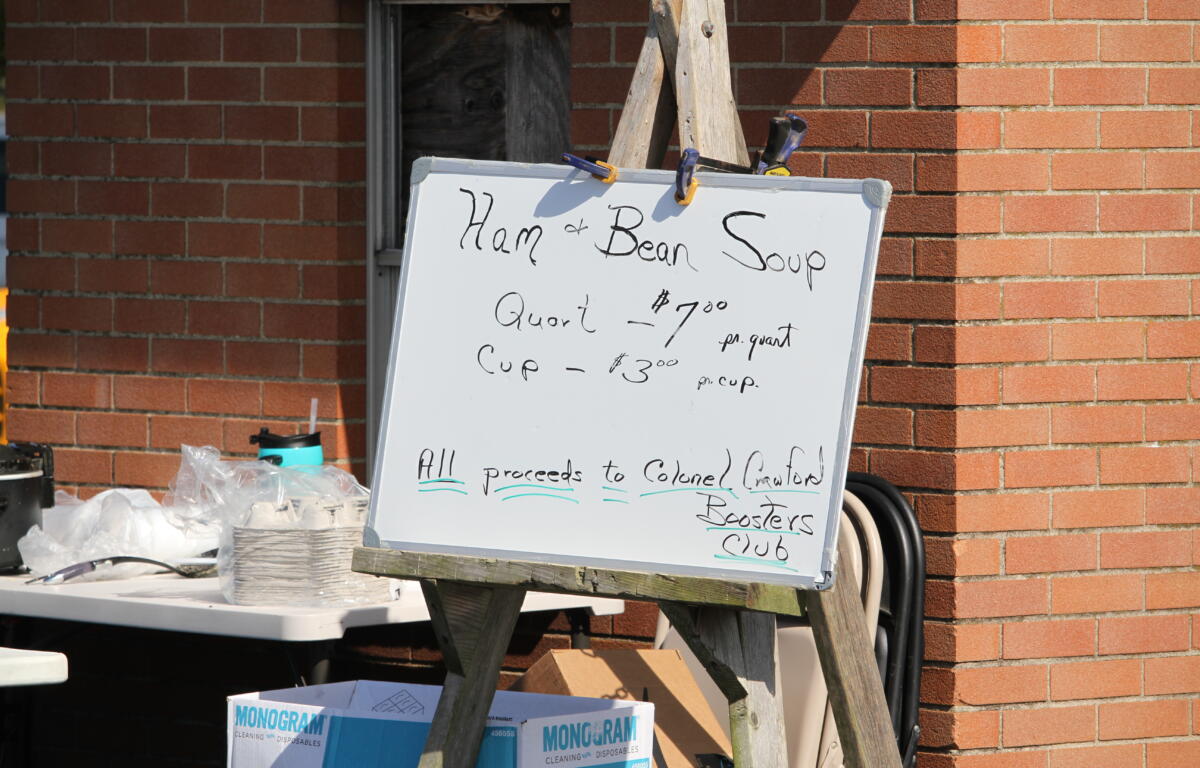 Ham & Bean Soup
Quart - $7.00
pr. quart
Cup - $3.00 pr. cup.
All proceeds to Colonel Crawford
Boosters
Club
MONOGRAM
CLEANING DISPOSABLES
MONOGRAM
CLEANING DISPOSABLES